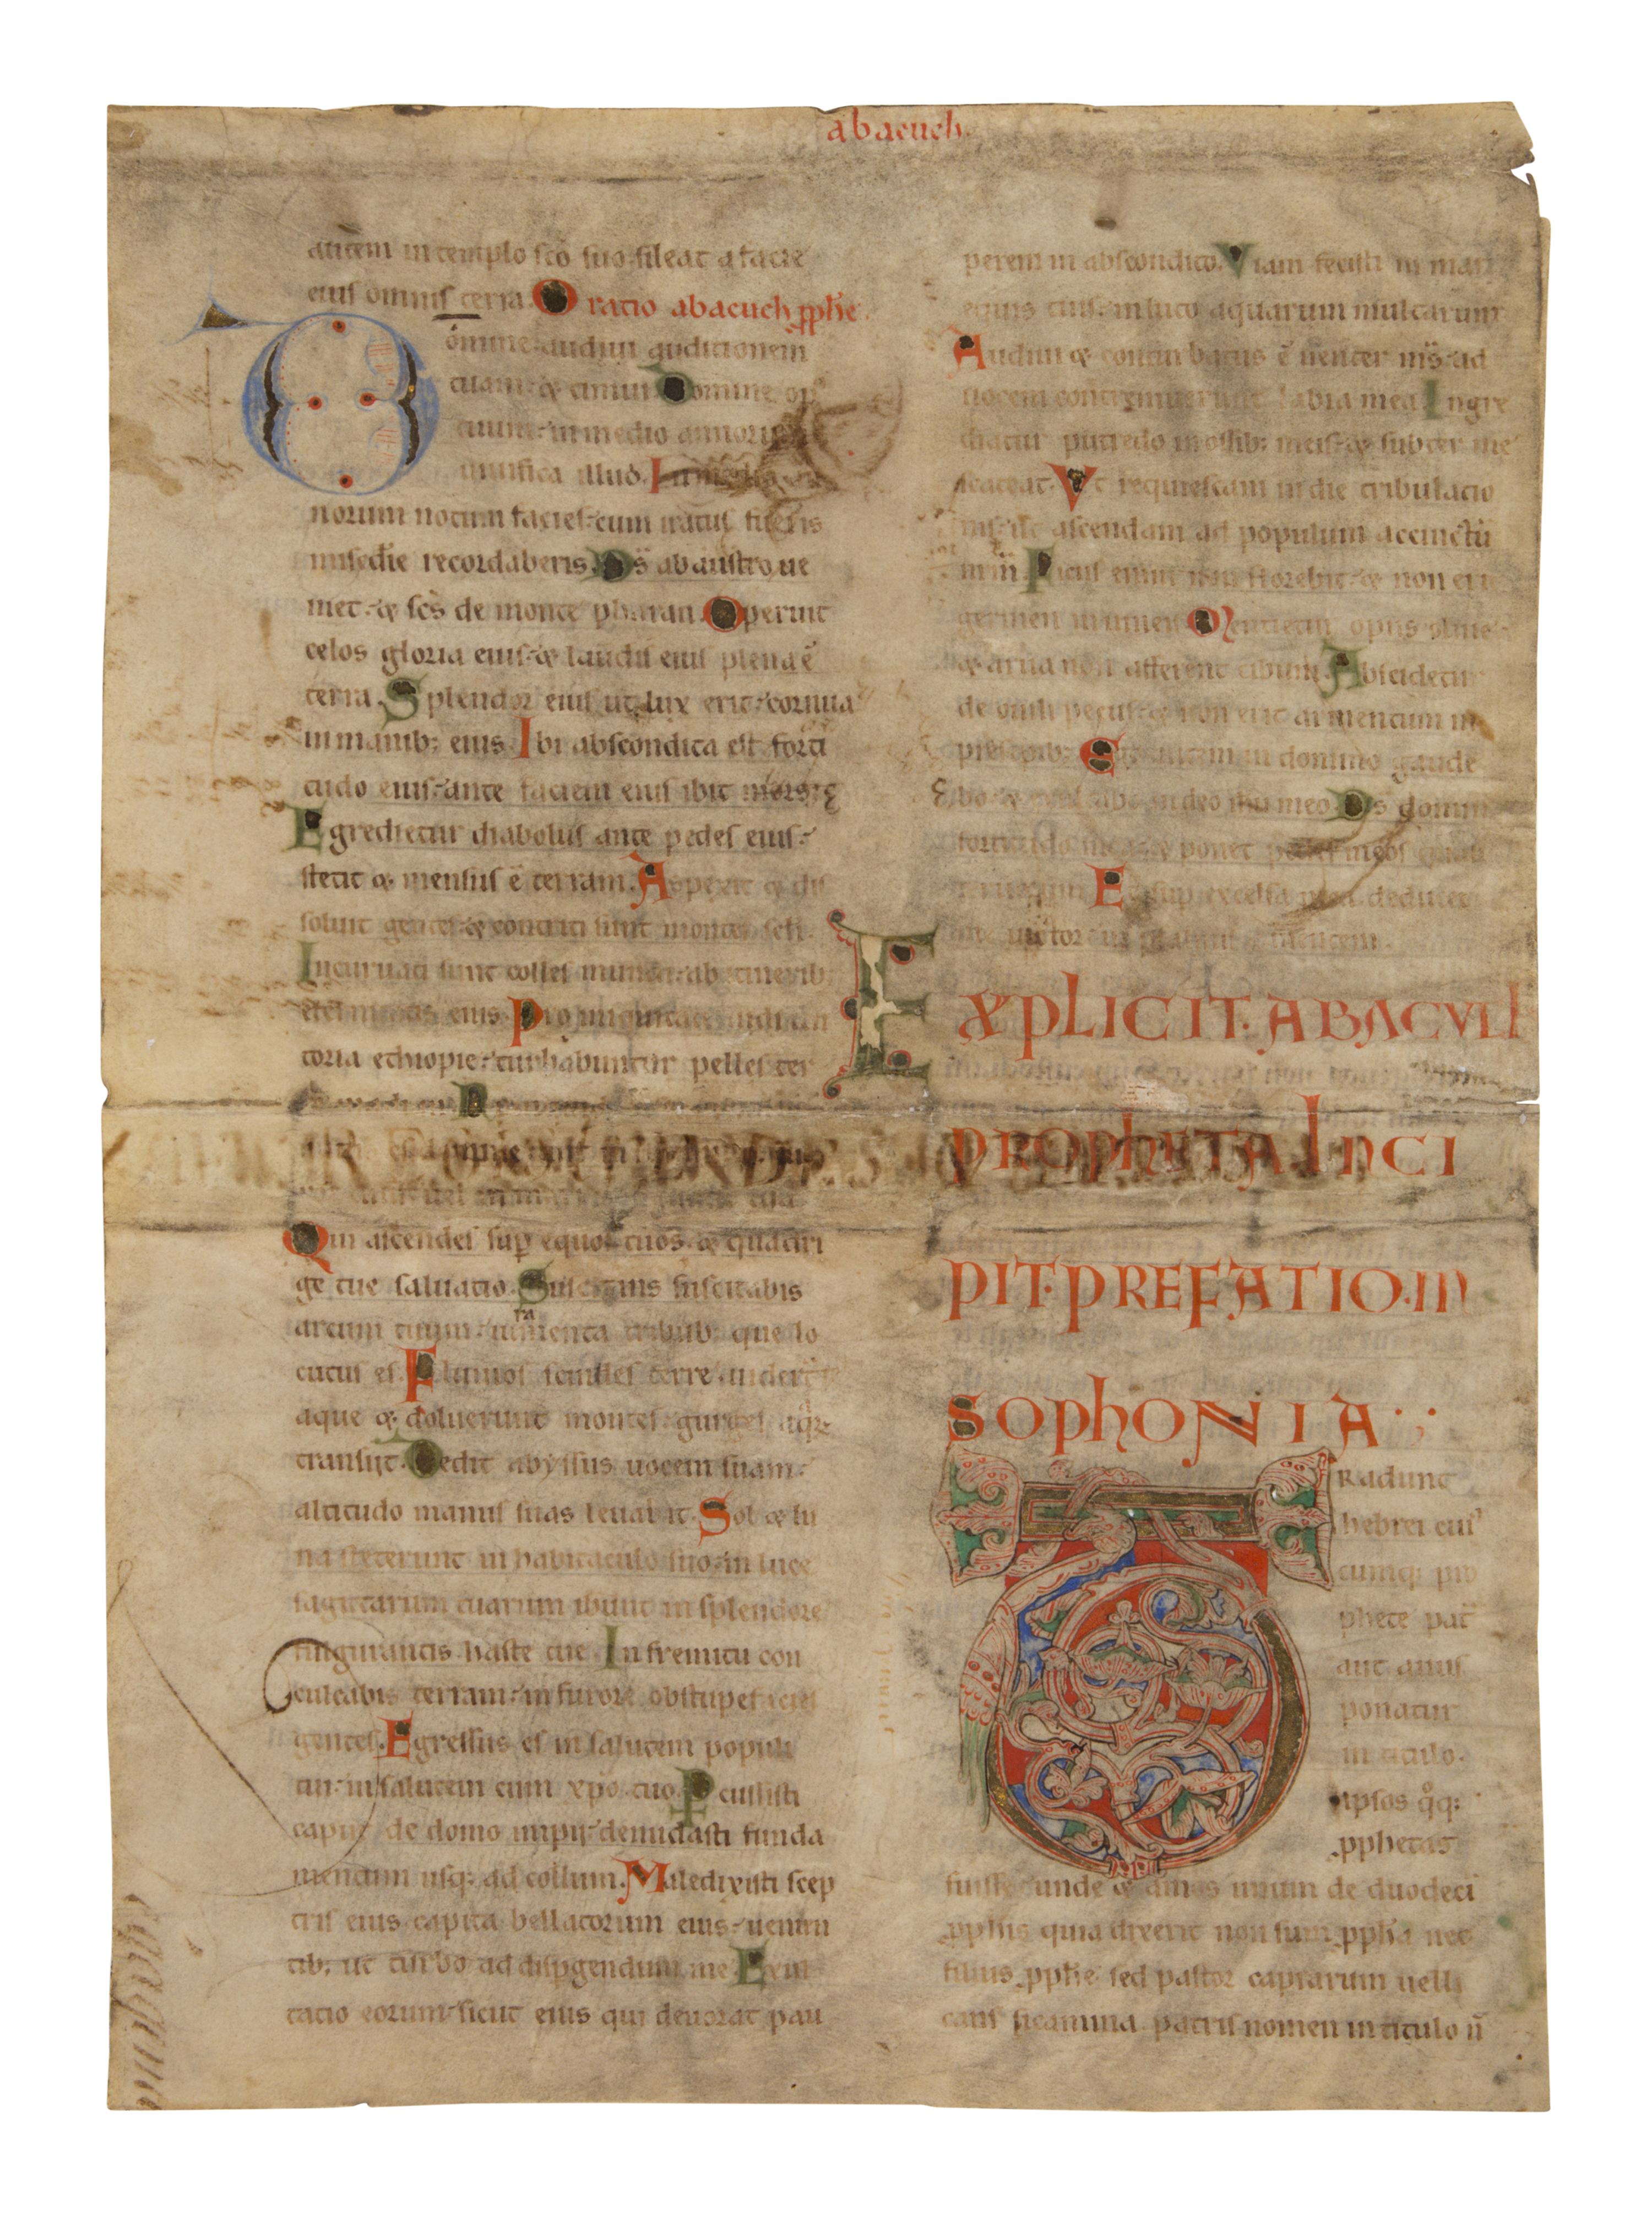 abacuch.
autem in templo sc̄o suo. sileat a facie
eius omnis terra. Oratio abacuch pphe.
Domine audiui auditionem
tuam: & timui. Domine op
tuum: in medio annorū
uiuifica illud. In medio an
norum notum facies: cum iratus fueris
misc̄die recordaberis. Ds̄ ab austro ue
niet: & sc̄s de monte pharan. Operuit
celos gloria eius: & laudis eius plena ē
terra. Splendor eius ut lux erit: cornua
in manib; eius. Ibi abscondita est forti
tudo eius: ante faciem eius ibit mors:
Egredietur diabolus ante pedes eius:
stetit & mensus ē terram. Aspexit & dis
soluit gentes: & contriti sunt montes sc̄li.
Incuruati sunt colles mundi: ab itinerib;
eternitatis eius. Pro iniquitate uidi ten
toria ethiopie: turbabuntur pelles ter
Qui ascendes sup equos tuos: & quadri
ge tue saluatio. Suscitans suscitabis
arcum tuum: iuramenta tribub; que lo
cutus es. Fluuios scindes terre: uidert̄
aque & doluerunt montes: gurges aqr̄
transiit. Dedit abyssus uocem suam:
altitudo manus suas leuauit. Sol & lu
na steterunt in habitaculo suo: in luce
sagittarum tuarum ibunt in splendore
fulgurantis haste tue. In fremitu con
culcabis terram: in furore obstupefacies
gentes. Egressus es in salutem populi
tui: in salutem cum xp̄o tuo. Pcussisti
caput de domo impii: denudasti funda
mentum usq; ad collum. Maledixisti scep
tris eius. capita bellatorum eius: uenien
tib; ut turbo ad dispgendum me. Exul
tatio eorum: sicut eius qui deuorat pau
perem in abscondito. Viam fecisti in mari
equis tuis: in luto aquarum multarum
Audiui & conturbatus ē uenter ms̄: ad
uocem contremuerunt labia mea. Ingre
diatur putredo in ossib; meis: & subter me
scateat. Vt requiescam in die tribulatio
nis: ut ascendam ad populum accinctū
nrm̄. Ficus enim non florebit: & non erit
germen in uineis. Mentietur opus oliue:
& arua non afferent cibum. Abscidetur
de ouili pecus: & non erit armentum in
presepib; Ego autem in domino gaude
bo: & exultabo in deo ihu meo. Ds̄ domin
fortitudo mea: & ponet pedes meos quasi
ceruorum. Et sup excelsa mea deducet
me uictor in psalmis canentem.
EXPLICIT. ABACVCH
PROPHETA. INCI
PIT. PREFATIO. IN
SOPHONIA
TRadunt
hebrei cuiꝰ
cumq; pro
phete pat̄
aut auus
ponatur
in titulo.
ipsos qq;
pphetas
fuisse. unde & amos unum de duodeci
pphis quia dixerit non sum ppha nec
filius pphe sed pastor caprarum uelli
cans sicamina. patris nomen in titulo ñ